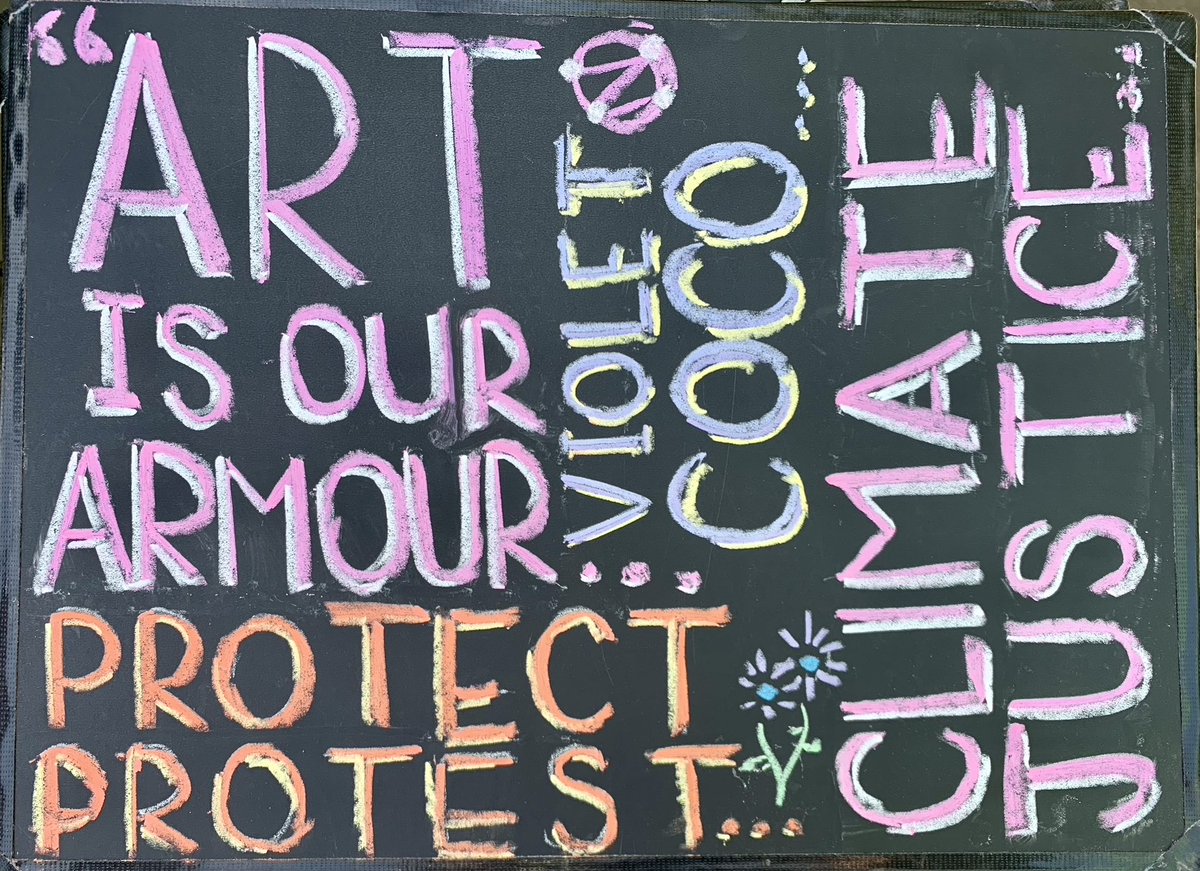 “ART
IS OUR
ARMOUR...
PROTECT
PROTEST...
VIOLET
COCO...
CLIMATE
JUSTICE...